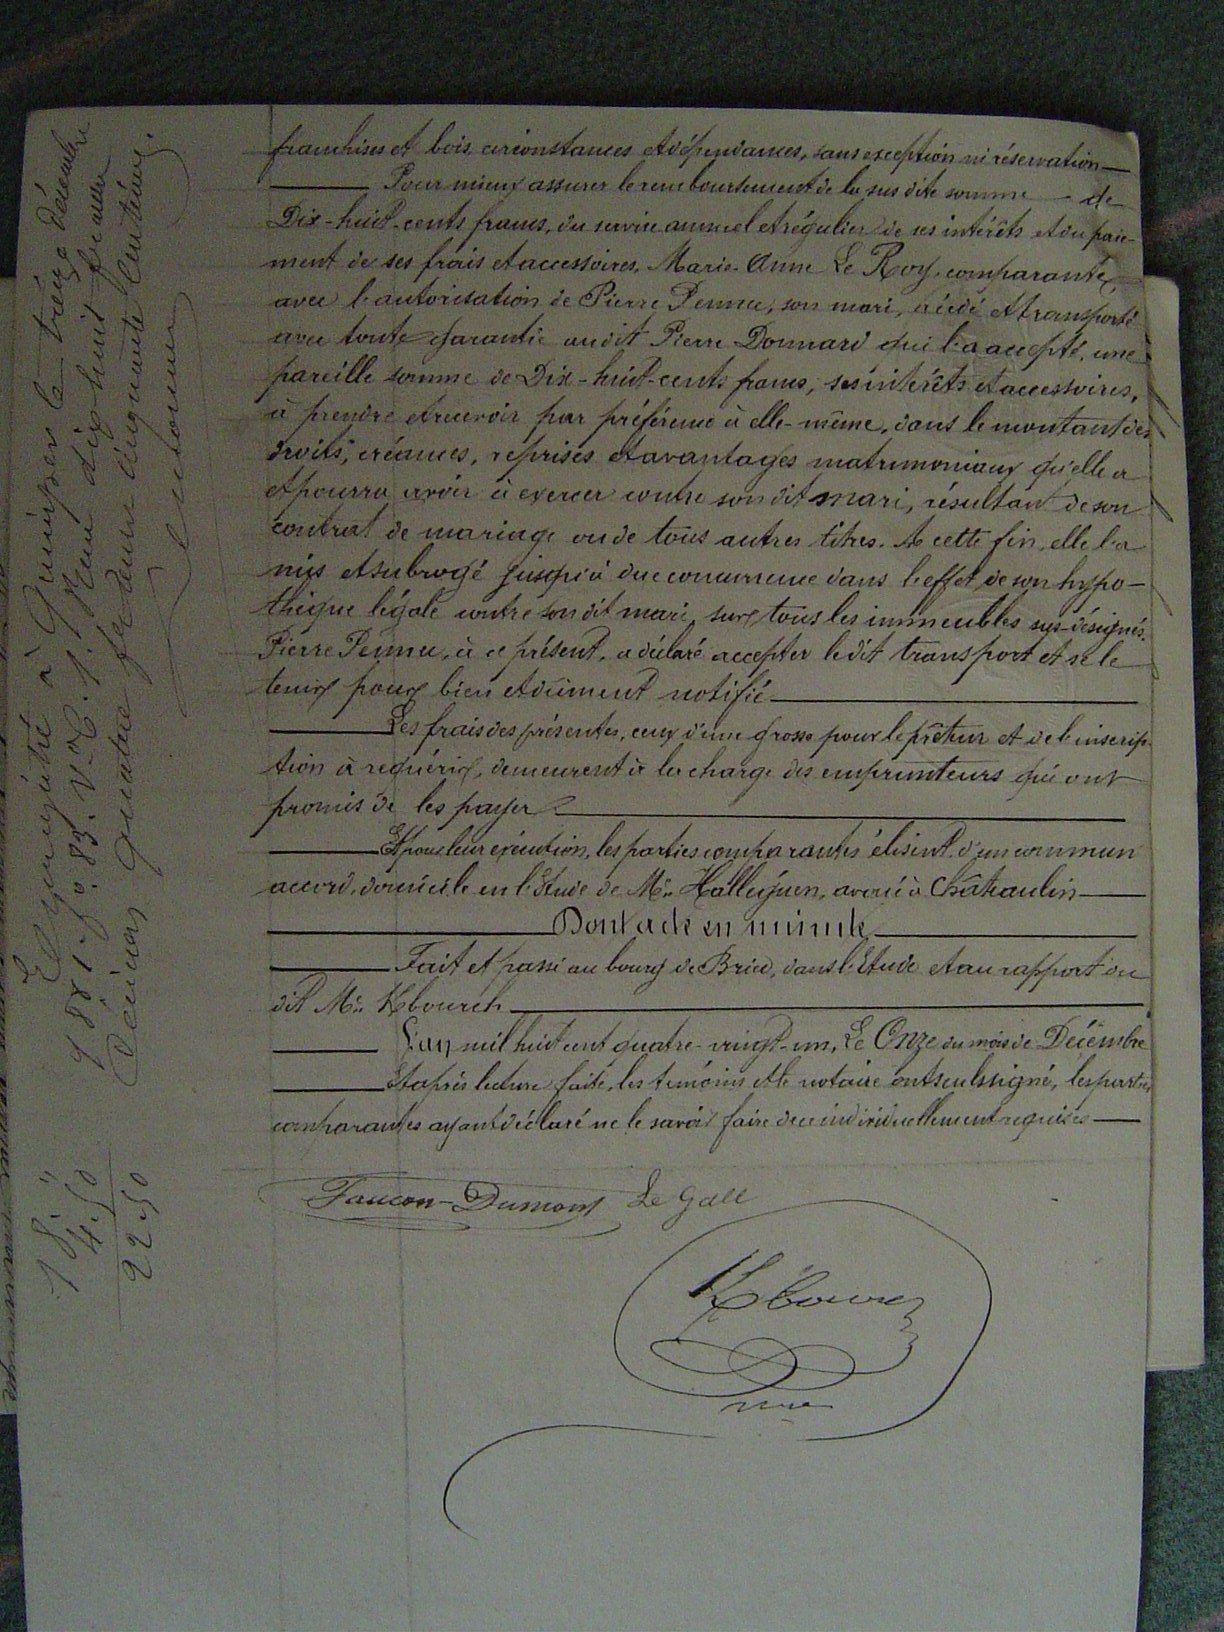 franchises et bois, circonstances et dépendances, sans exception ni réservation
Pour mieux assurer le remboursement de la sus dite somme de
Dix-huit-cents francs, du service annuel et régulier de ses intérêts et du paie-
ment de ses frais et accessoires, Marie-Anne Le Roy, comparante,
avec l'autorisation de Pierre Pennec, son mari, a cédé et transporté
avec toute garantie audit Pierre Donnard qui l'a accepté, une
pareille somme de Dix-huit-cents francs, ses intérêts et accessoires,
à prendre et recevoir par préférence à elle-même, dans le montant des
droits, créances, reprises et avantages matrimoniaux qu'elle a
et pourra avoir à exercer contre son dit mari, résultant de son
contrat de mariage ou de tous autres titres. A cette fin, elle l'a
mis et subrogé jusqu'à due concurrence dans l'effet de son hypo-
thèque légale contre son dit mari, sur tous les immeubles sus-désignés.
Pierre Pennec, à ce présent, a déclaré accepter le dit transport et se le
tenir pour bien et dûment notifié
Les frais des présentes, ceux d'une grosse pour le prêteur et de l'inscrip-
tion à requérir, demeurent à la charge des emprunteurs qui ont
promis de les payer
Et pour leur exécution, les parties comparantes élisent d'un commun
accord, domicile en l'Etude de Me Halléguen, avoué à Châteaulin
Dont acte en minute
Fait et passé au bourg de Briec, dans l'Etude et au rapport du
dit Me Kbourch
L'an mil huit cent quatre-vingt-un, Le Onze du mois de Décembre
Et après lecture faite, les témoins et le notaire ont seuls signé, les parties
comparantes ayant déclaré ne le savoir faire de ce individuellement requises
Faucon-Dumont Le Gall
Kbourch
nre
Enregistré à Quimper le treize décembre
1881. fo. 83. Vo. C. 1. Reçu dix huit francs
Décimes quatre francs cinquante centimes.
18. "
4.50
22.50